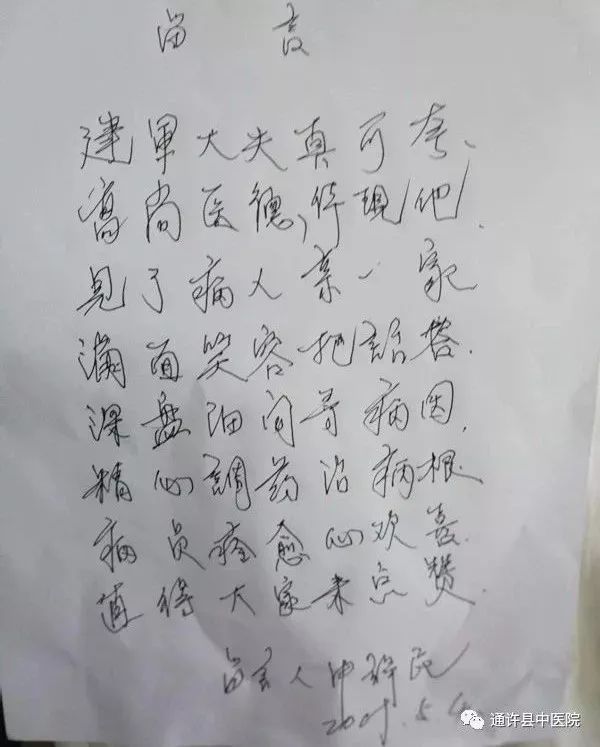 留言
建军大夫真可夸、
高尚医德,体现他.
见了病人亲一家
满面笑容把話答.
深盘细问寻病因.
精心調药治病根
病员痊愈心欢喜.
值得大家来点赞.
留言人
通许县中医院